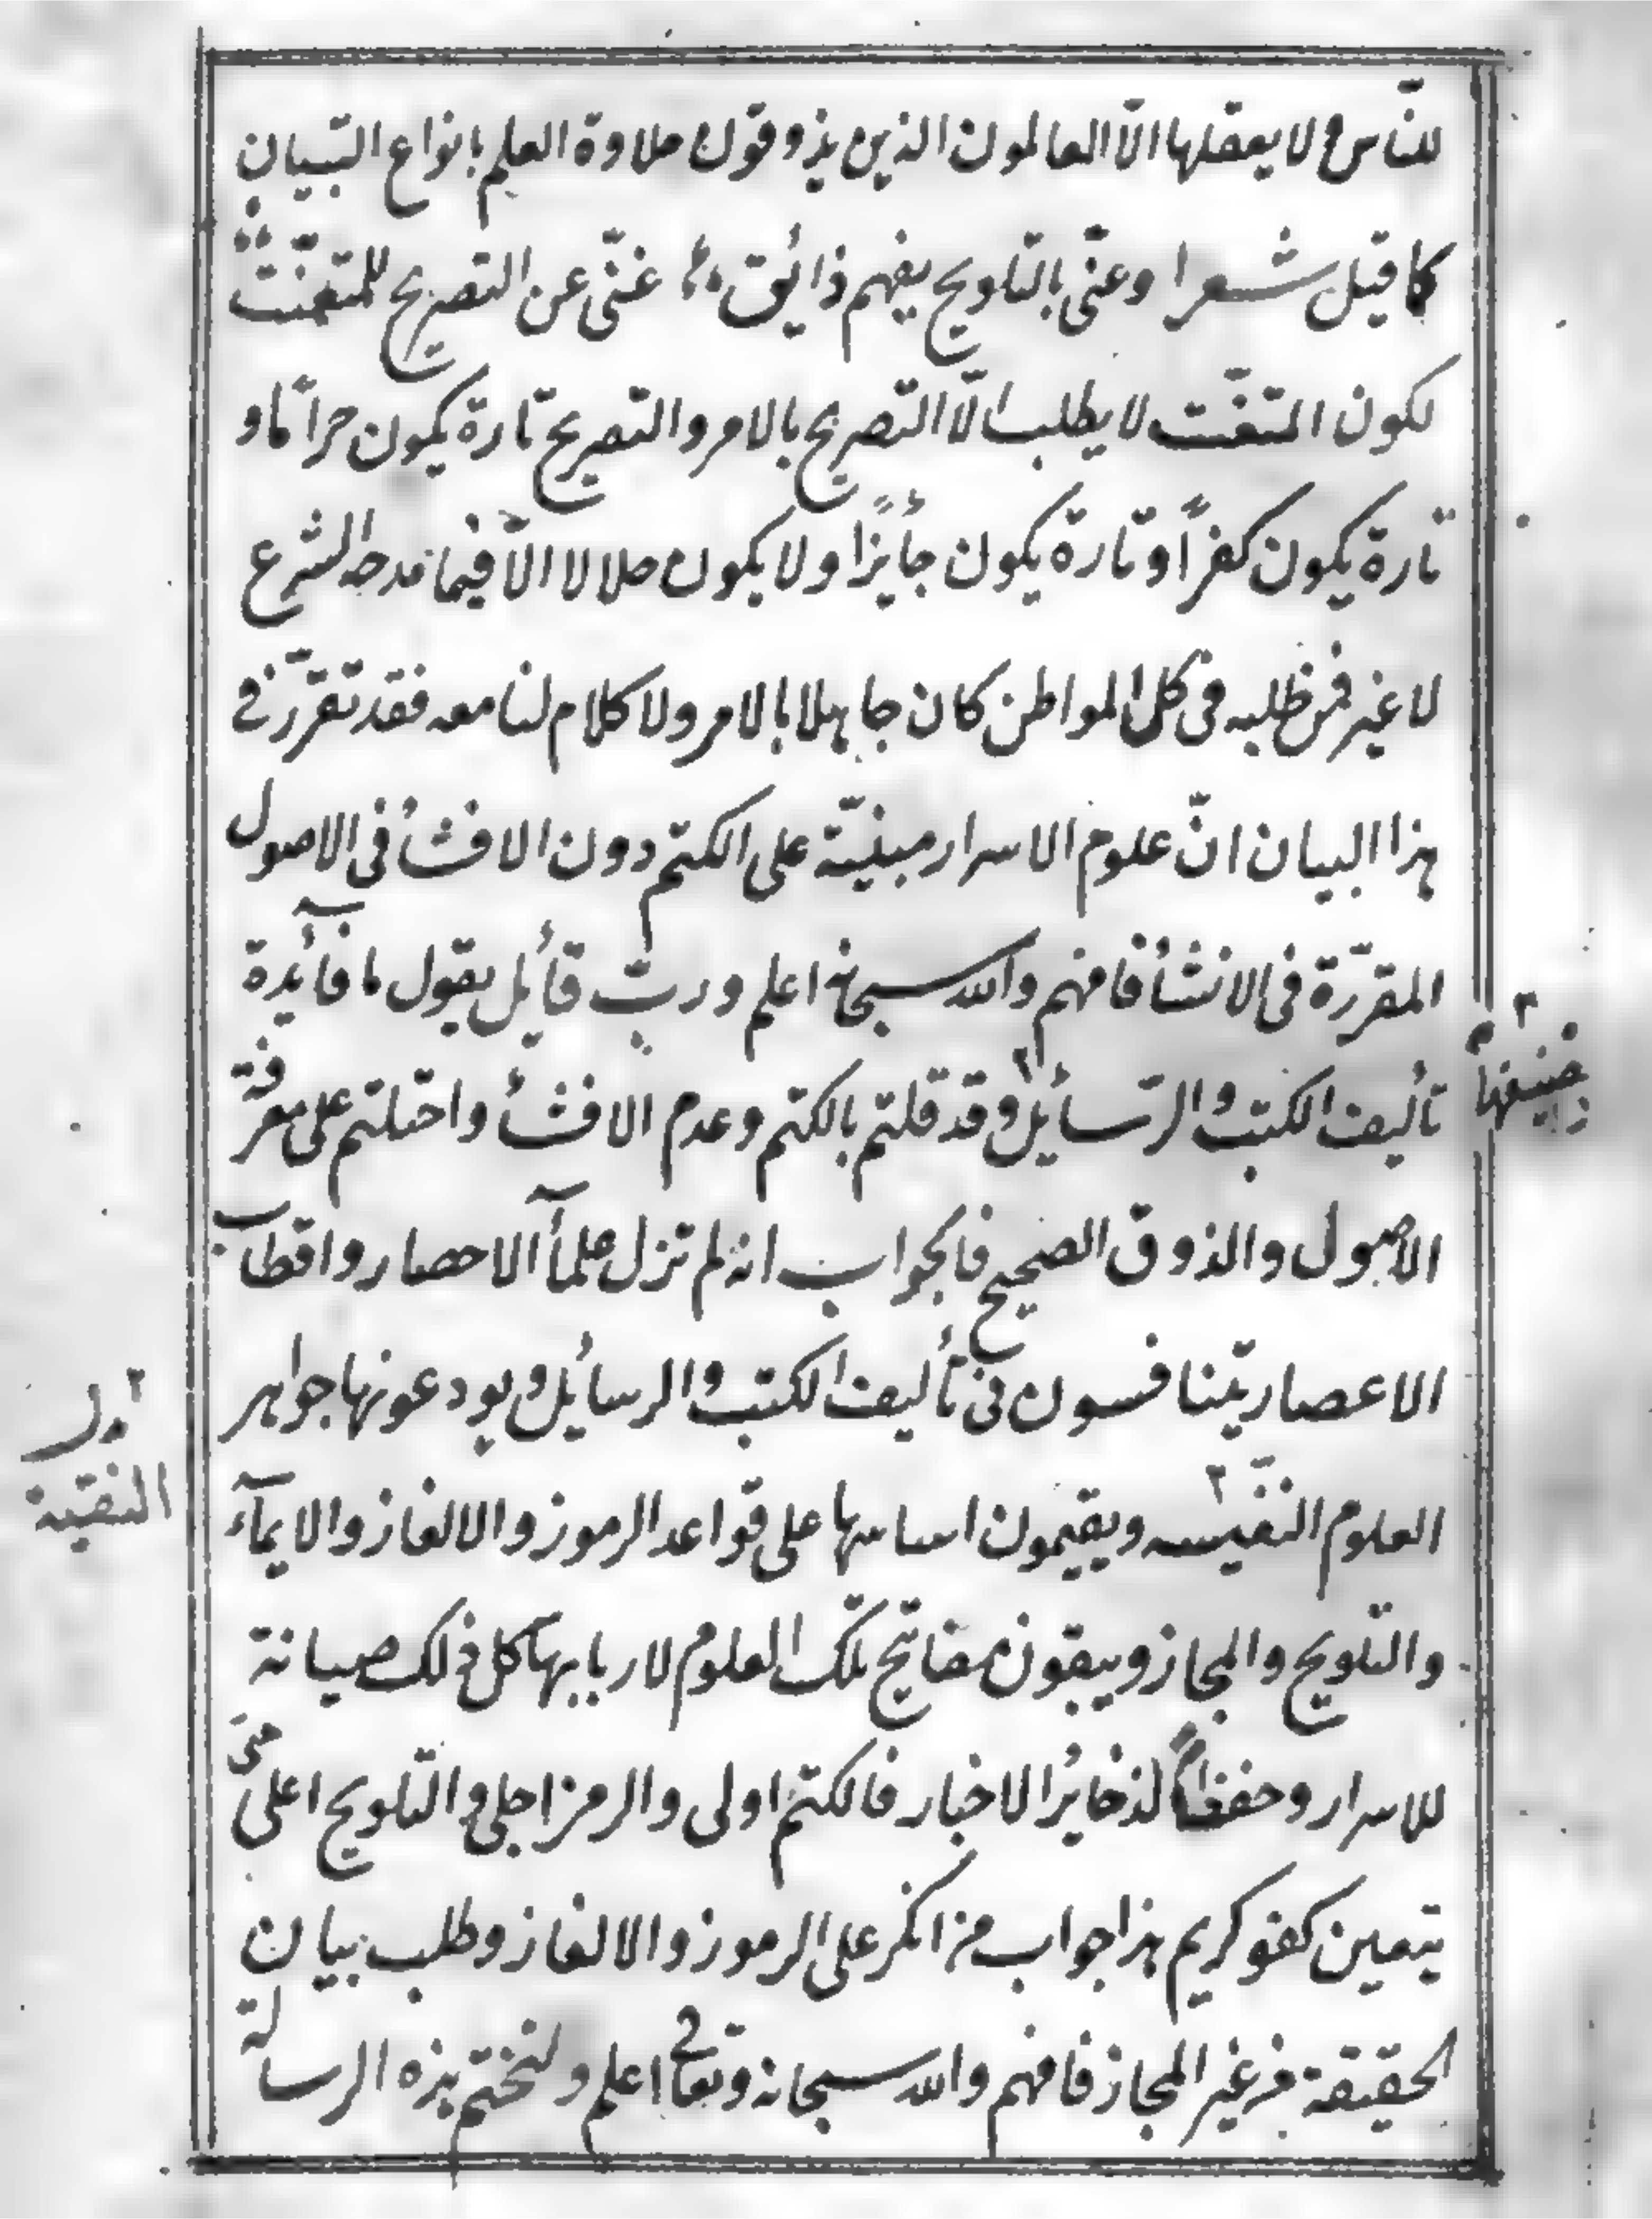 للنّاس و لا يعقلها الّا العالمون الذين يذوقون حلاوة العلم بانواع التبيان
كما قيل شعرا وعنّى بالتلويح يفهم ذائق غنّى عن التصريح للمتعنّت
لكون المتعنّت لا يطلب الّا التصريح بالامر والتصريح تارة يكون حرامًا و
تارة يكون كفرًا وتارة يكون جائزًا ولا يكون حلالا الّا فيما مدحه الشرع
لا غير فمن طلبه فى كل المواطن كان جاهلا بالامر ولا كلام لنا معه فقد تقرّر فى
هذا البيان انّ علوم الاسرار مبنيّة على الكتم دون الافشأ فى الاصول
المقرّرة فى الانشأ فافهم والله سبحانه اعلم وربّ قأيل يقول ما فأيدة
تأليف الكتب والرّسأيل وقد قلتم بالكتم وعدم الافشأ واحتلتم على معرفة
وتصنيفها
الاصول والذوق الصحيح فالجواب انه لم تزل علمأ الاحصار واقطاب
الاعصار يتنافسون فى تأليف الكتب والرسائل ويودعونها جواهر
العلوم النفيسه ويقيمون اساسها على قواعد الرموز والالغاز والايمآء
النقية
والتلويح والمجاز ويبقون مفاتيح تلك العلوم لاربابها كل ذلك صيانة
للاسرار وحفظاً لذخائر الاخبار فالكتم اولى والرمز اجلى والتلويح اعلى حتى
يتعين كفو كريم هذا جواب من انكر على الرموز والالغاز وطلب بيان
الحقيقة من غير المجاز فافهم والله سبحانه وتعالى اعلم ولنختم هذه الرسالة